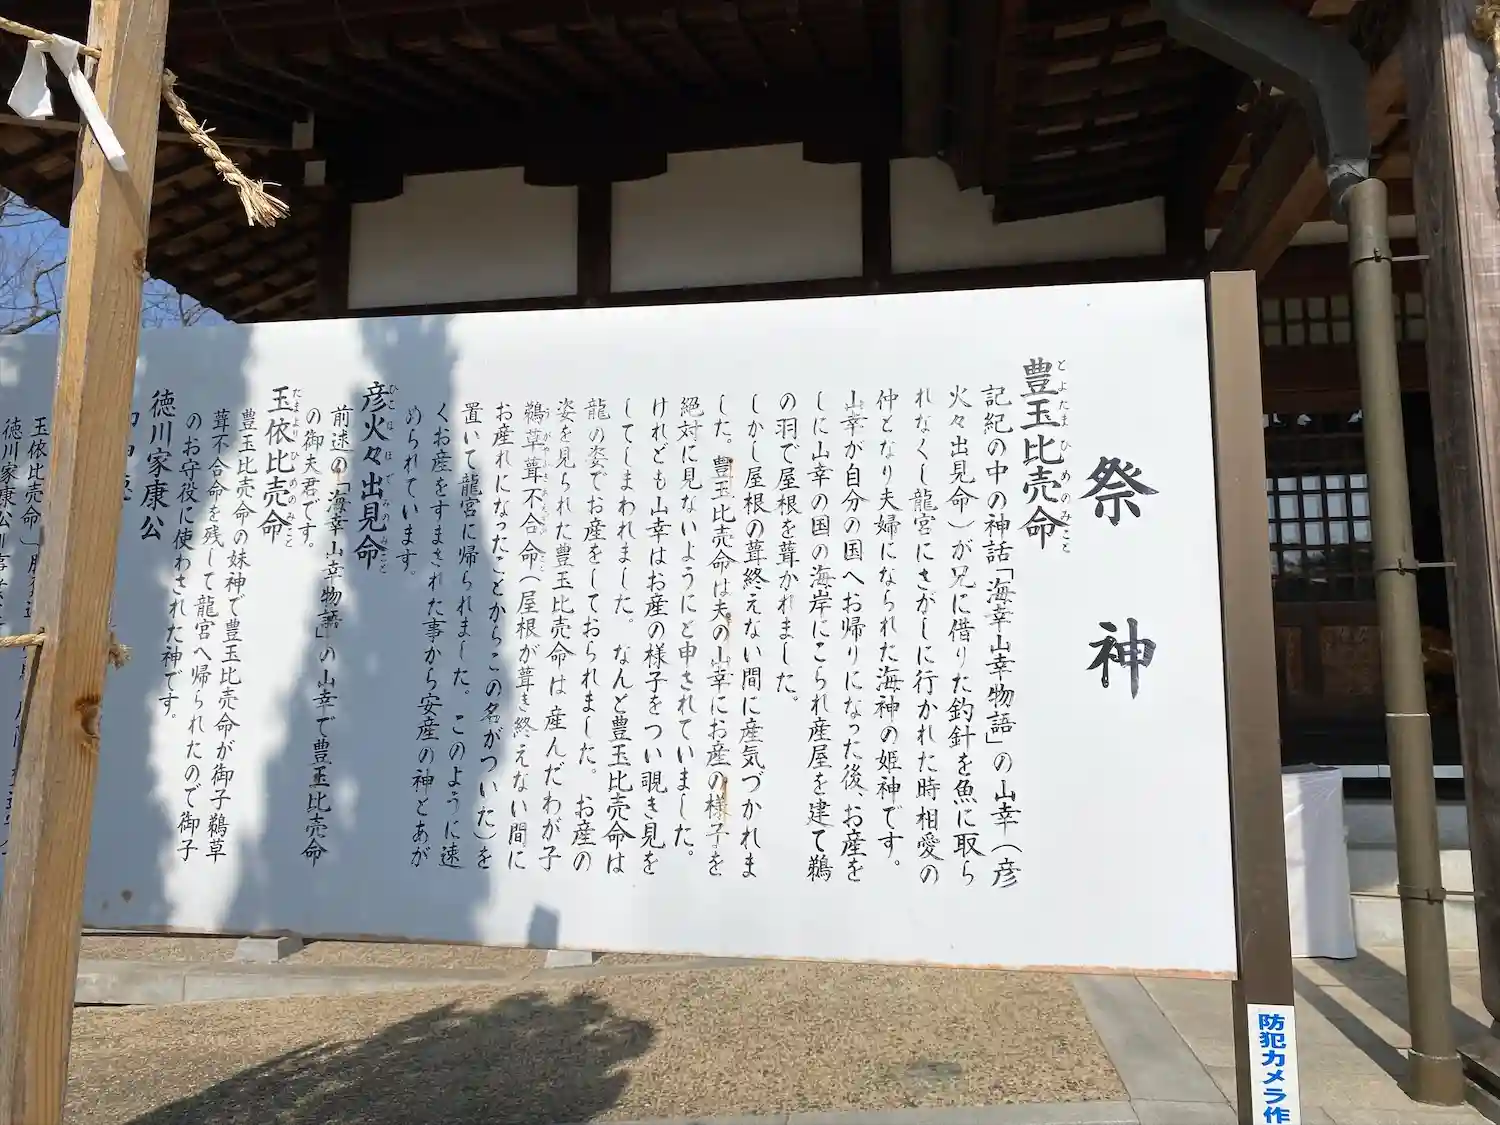 祭神
豊玉比売命
とよたまひめのみこと
記紀の中の神話「海幸山幸物語」の山幸（彦
火々出見命）が兄に借りた釣針を魚に取ら
れなくし龍宮にさがしに行かれた時相愛の
仲となり夫婦になられた海神の姫神です。
山幸が自分の国へお帰りになった後、お産を
しに山幸の国の海岸にこられ産屋を建て鵜
の羽で屋根を葺かれました。
しかし屋根の葺終えない間に産気づかれま
した。豊玉比売命は夫の山幸にお産の様子を
絶対に見ないようにと申されていました。
けれども山幸はお産の様子をつい覗き見を
してしまわれました。なんと豊玉比売命は
龍の姿でお産をしておられました。お産の
姿を見られた豊玉比売命は産んだわが子
鵜草葺不合命（屋根が葺き終えない間に
お産れになったことからこの名がついた）を
置いて龍宮に帰られました。このように速
くお産をすまされた事から安産の神とあが
められています。
彦火々出見命
ひこほほでみのみこと
前述の「海幸山幸物語」の山幸で豊玉比売命
の御夫君です。
玉依比売命
たまよりひめのみこと
豊玉比売命の妹神で豊玉比売命が御子鵜草
葺不合命を残して龍宮へ帰られたので御子
のお守役に使わされた神です。
徳川家康公
玉依比売命
徳川家康公
防犯カメラ作